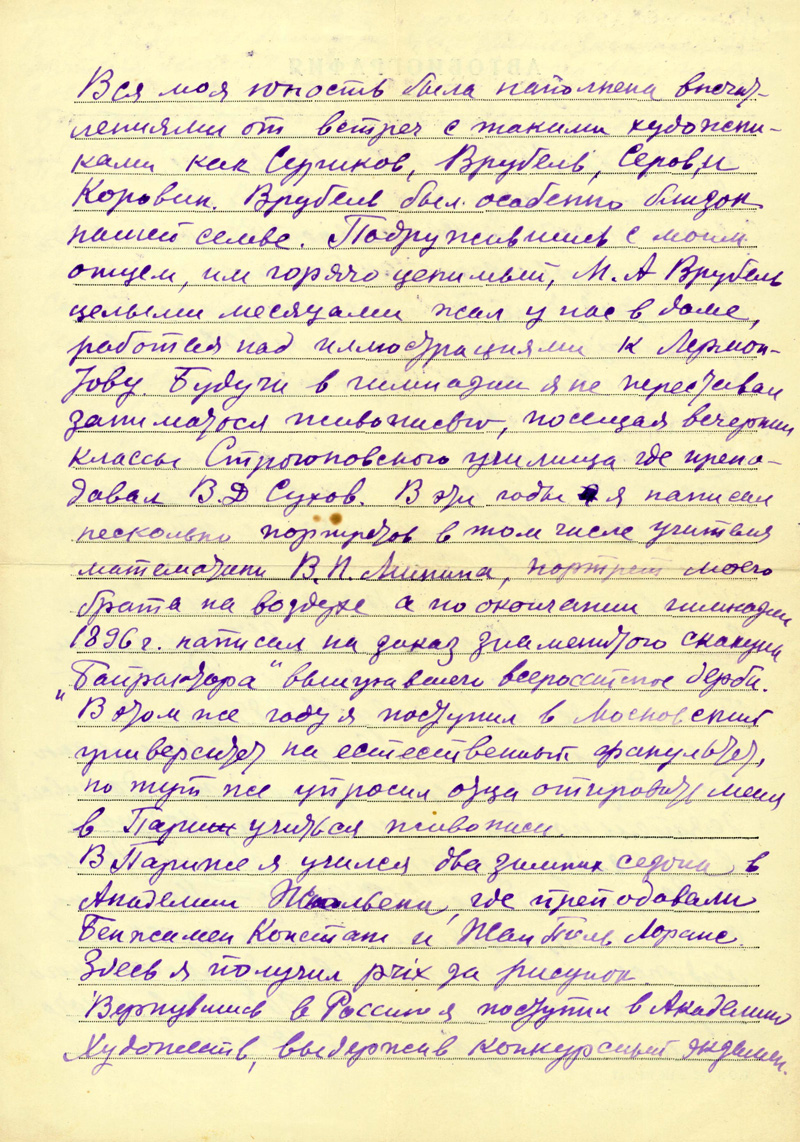 Вся моя юность была наполнена впечат-
лениями от встреч с такими художни-
ками как Суриков, Врубель, Серов, и
Коровин. Врубель был особенно близок
нашей семье. Подружившись с моим
отцем, им горячо ценимый, М. А Врубель
целыми месяцами жил у нас в доме,
работая над иллюстрациями к Лермон-
тову. Будучи в гимназии я не переставал
заниматься живописью, посещая вечерния
классы Строгоновского училища где препо-
давал В.Д Сухов. В эти годы я написал
несколько портретов в том числе учителя
математики В.П. Минина, портрет моего
брата на воздухе а по окончании гимназии
1896 г. написал на заказ знаменитого скакуна
"Байрактара" выигравшего всероссийское дерби.
В этом же году я поступил в Московский
университет на естественный факультет,
но тут же упросил отца отправить меня
в Париж учиться живописи.
В Париже я учился два зимних сезона в
Академии Жюльена, где преподавали
Бенжамен Констан и Жан Поль Лоранс.
Здесь я получил prix за рисунок
Вернувшись в Россию я поступил в Академию
Художеств, выдержив конкурсный экзамен.